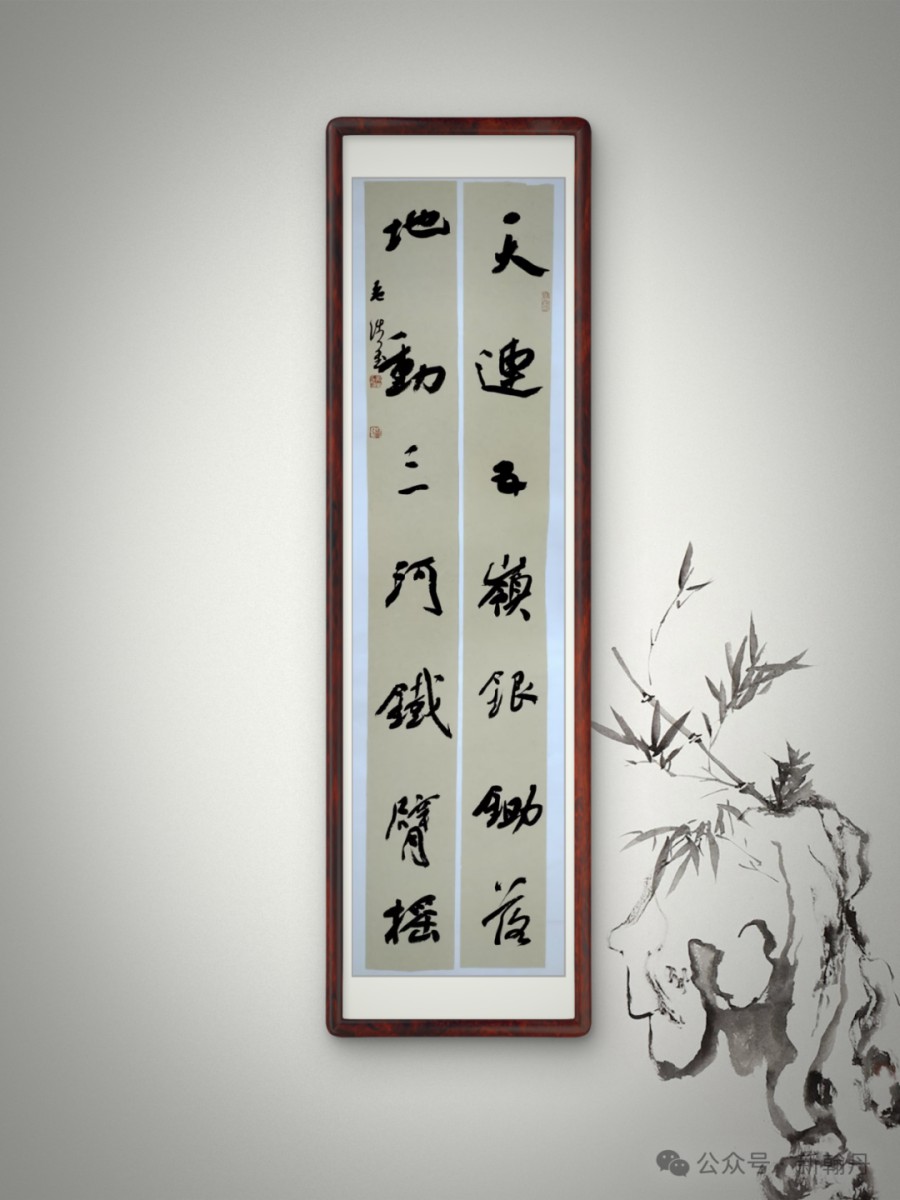 天連五嶺銀鋤落
地動三河鐵臂摇
公众号 · 新翰丹